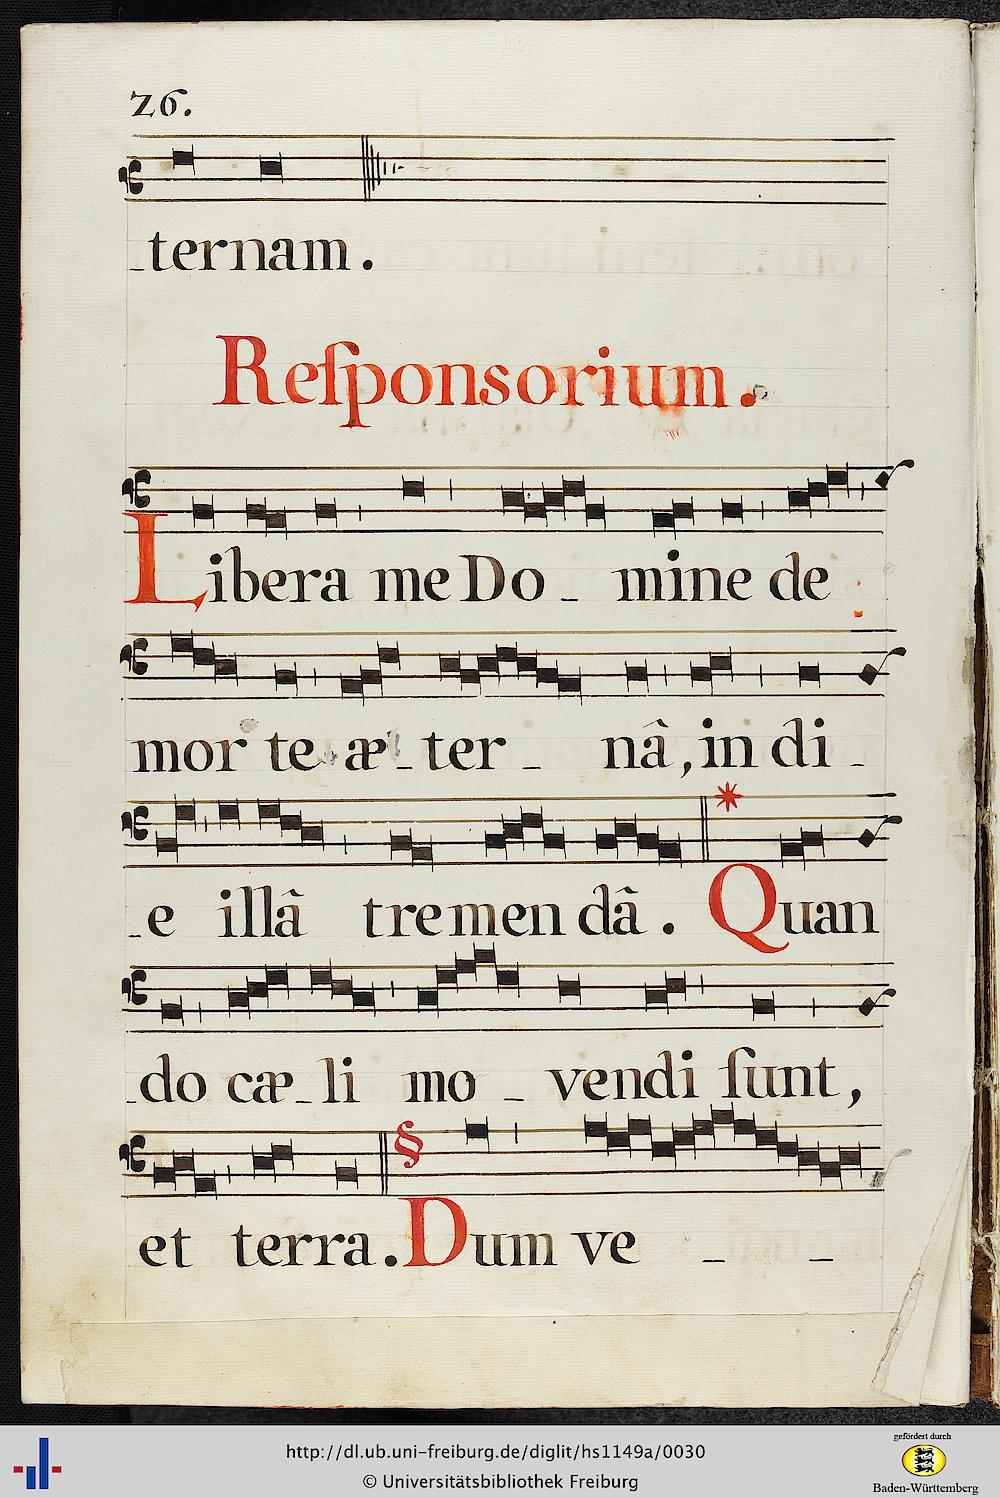 26.
_ternam.
Reſponsorium.
Libera me Do _ mine de
mor te æ _ ter _ nâ, in di _
_e illâ tremen dâ. * Quan
_do cæ _ li mo _ vendi ſunt,
et terra. § Dum ve _ _
gefördert durch
http://dl.ub.uni-freiburg.de/diglit/hs1149a/0030
© Universitätsbibliothek Freiburg
Baden-Württemberg